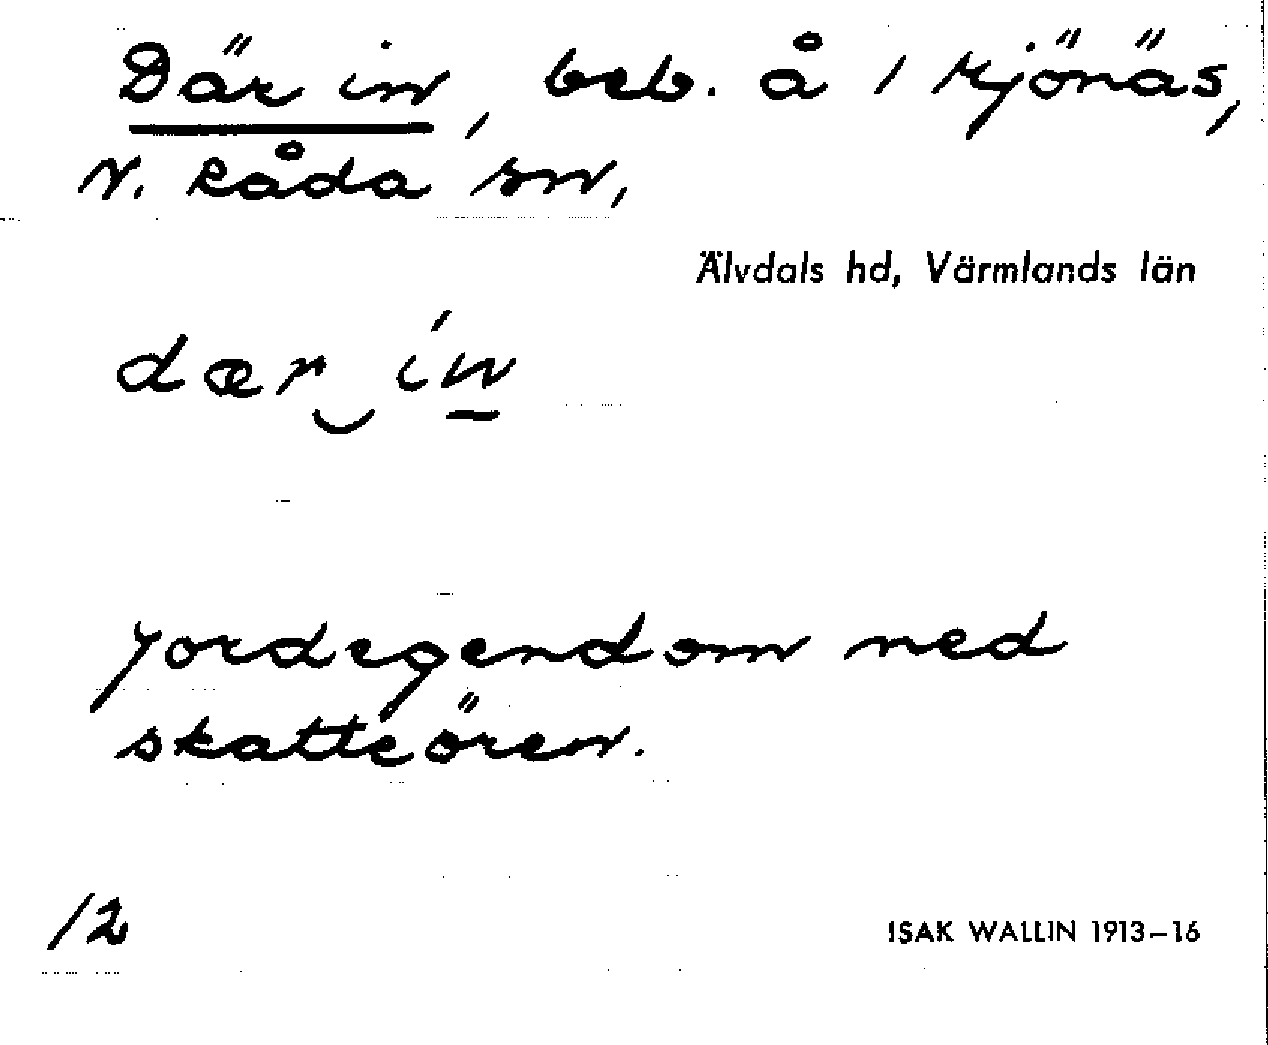 Där in, beb. å 1 Mjönäs,
N. Råda sn,
Älvdals hd, Värmlands län
dær‿ íꞷn
Jordegendom med
skatteören.
12
ISAK WALLIN 1913–16